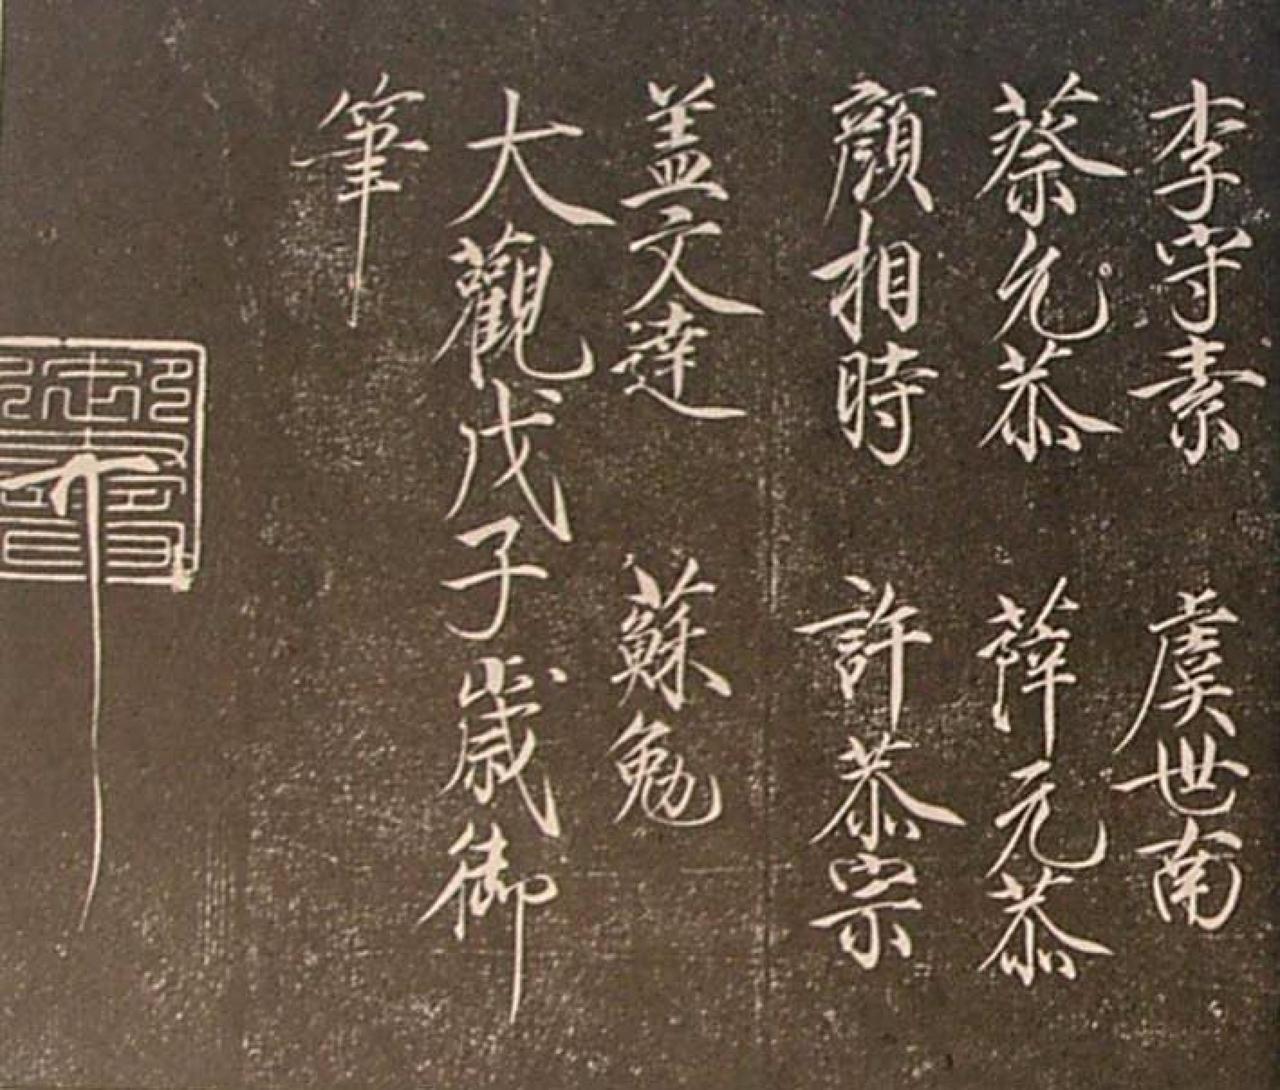 李守素 虞世南
蔡允恭 薛元恭
顔相時 許恭宗
盖文達 蘇勉
大觀戊子歳御
筆